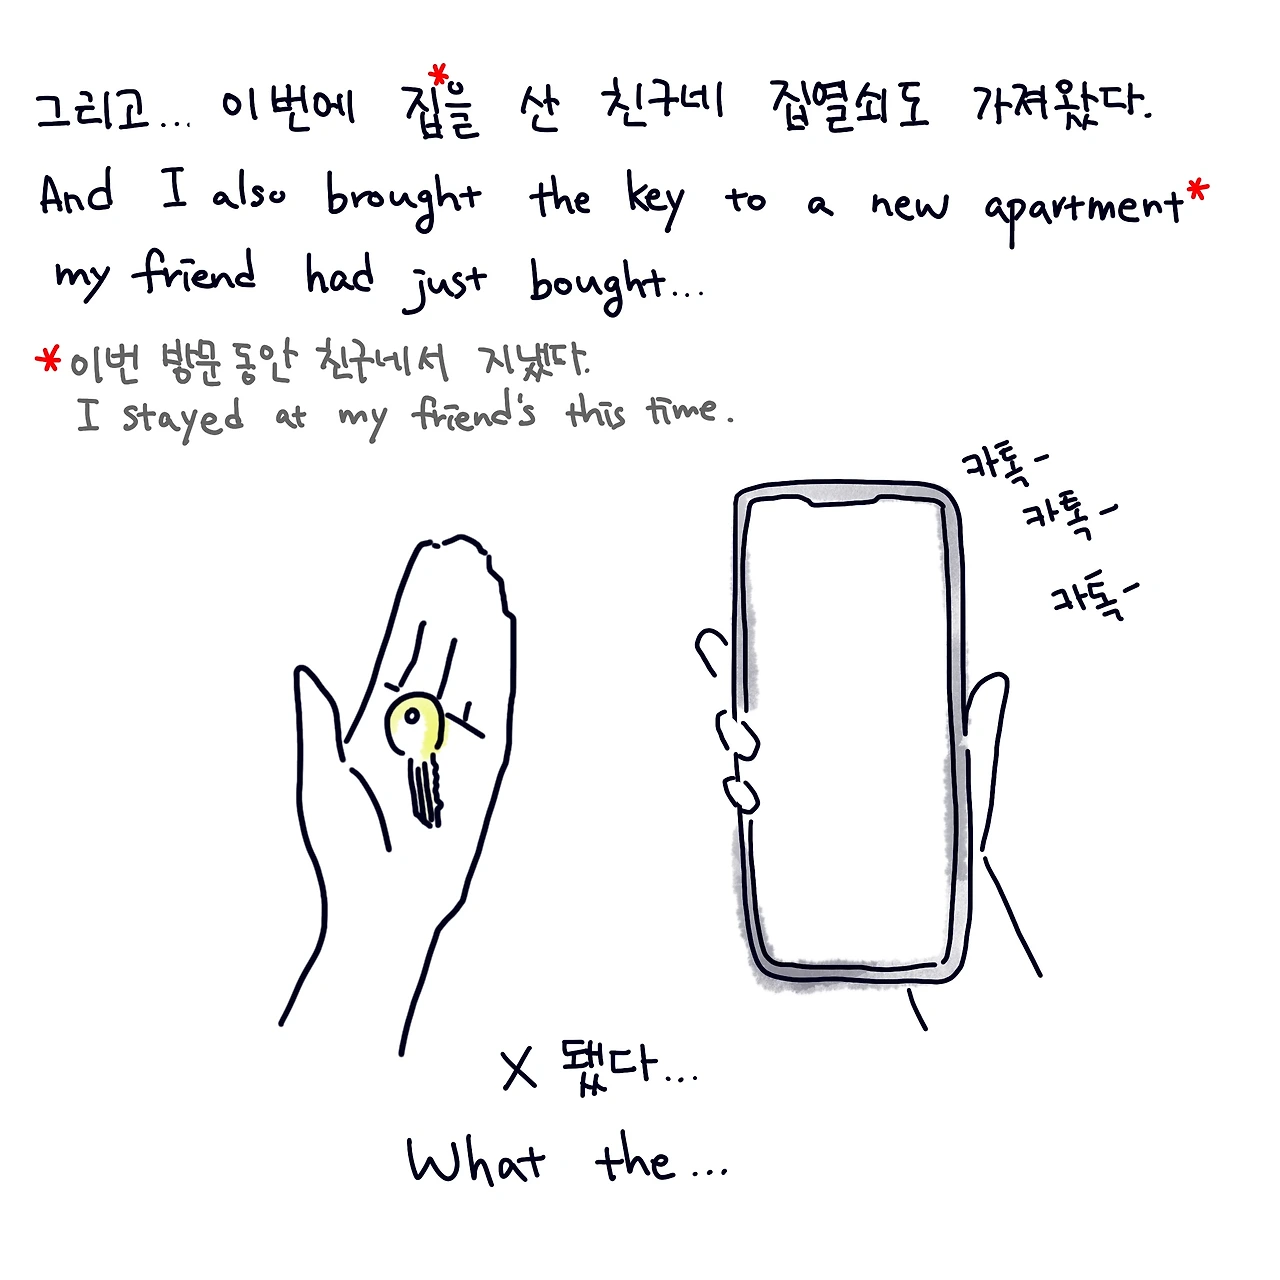 그리고... 이번에 집*을 산 친구네 집열쇠도 가져왔다.
And I also brought the key to a new apartment*
my friend had just bought...
*이번 방문동안 친구네서 지냈다.
I stayed at my friend's this time.
카톡-
카톡-
카톡-
X 됐다...
What the...